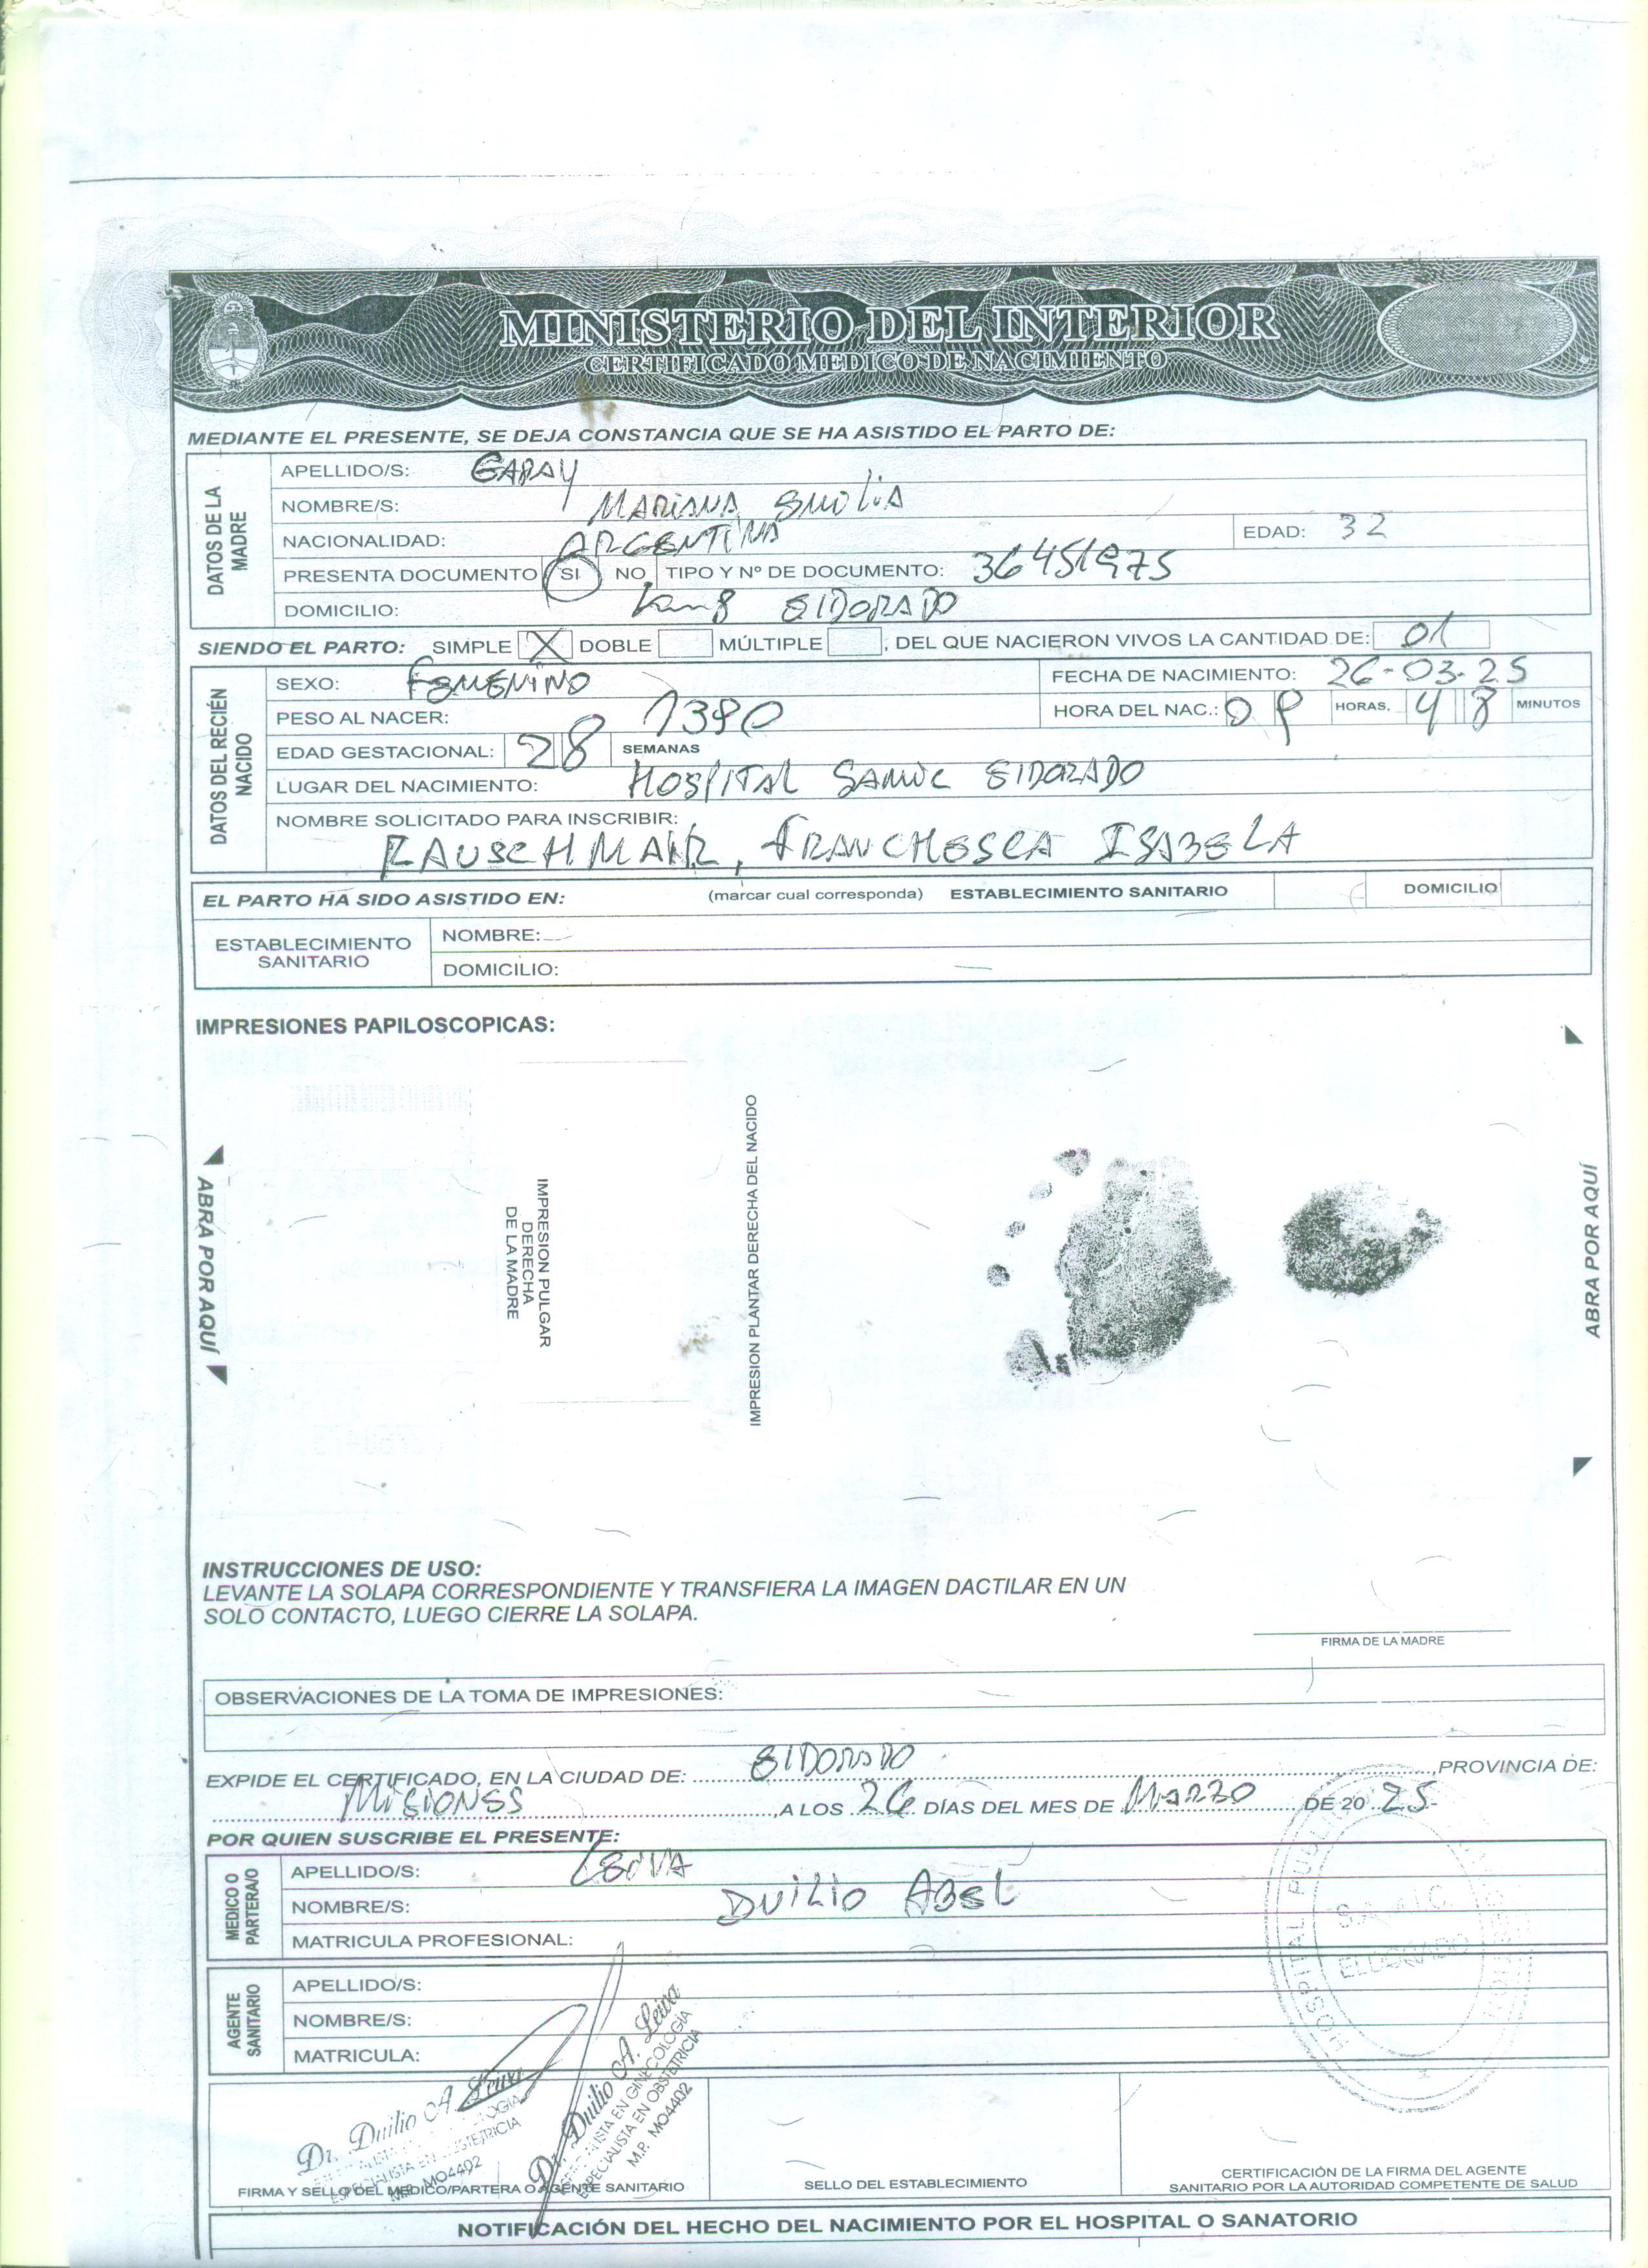 MINISTERIO DEL INTERIOR
CERTIFICADO MEDICO DE NACIMIENTO
MEDIANTE EL PRESENTE, SE DEJA CONSTANCIA QUE SE HA ASISTIDO EL PARTO DE:
DATOS DE LA MADRE
APELLIDO/S: GARAY
NOMBRE/S: MARIANA EMILIA
NACIONALIDAD: ARGENTINA EDAD: 32
PRESENTA DOCUMENTO SI NO TIPO Y Nº DE DOCUMENTO: 36451975
DOMICILIO: Km 8 ELDORADO
SIENDO EL PARTO: SIMPLE X DOBLE MÚLTIPLE , DEL QUE NACIERON VIVOS LA CANTIDAD DE: 01
DATOS DEL RECIÉN NACIDO
SEXO: FEMENINO FECHA DE NACIMIENTO: 26-03-25
PESO AL NACER: 1390 HORA DEL NAC.: HORAS. 48 MINUTOS
EDAD GESTACIONAL: 28 SEMANAS
LUGAR DEL NACIMIENTO: HOSPITAL SAMIC ELDORADO
NOMBRE SOLICITADO PARA INSCRIBIR:
FRANCHESCA ISABELA
EL PARTO HA SIDO ASISTIDO EN: (marcar cual corresponda) ESTABLECIMIENTO SANITARIO DOMICILIO
ESTABLECIMIENTO SANITARIO
NOMBRE:
DOMICILIO:
IMPRESIONES PAPILOSCOPICAS:
ABRA POR AQUÍ
IMPRESION PULGAR
DERECHA
DE LA MADRE
IMPRESION PLANTAR DERECHA DEL NACIDO
ABRA POR AQUÍ
INSTRUCCIONES DE USO:
LEVANTE LA SOLAPA CORRESPONDIENTE Y TRANSFIERA LA IMAGEN DACTILAR EN UN
SOLO CONTACTO, LUEGO CIERRE LA SOLAPA.
FIRMA DE LA MADRE
OBSERVACIONES DE LA TOMA DE IMPRESIONES:
EXPIDE EL CERTIFICADO, EN LA CIUDAD DE: ELDORADO ,PROVINCIA DE:
MISIONES ,A LOS 26 DÍAS DEL MES DE MARZO DE 20 25.
POR QUIEN SUSCRIBE EL PRESENTE:
MEDICO O PARTERA/O
APELLIDO/S: LEIVA
NOMBRE/S: DUILIO ABEL
MATRICULA PROFESIONAL:
AGENTE SANITARIO
APELLIDO/S:
NOMBRE/S:
MATRICULA:
HOSPITAL PUBLICO
S.A.M.I.C.
ELDORADO
Dr. Duilio A. Leiva
ESPECIALISTA EN OBSTETRICIA
M.P. MO4402
Dr. Duilio A. Leiva
ESPECIALISTA EN GINECOLOGIA
ESPECIALISTA EN OBSTETRICIA
M.P. MO4402
FIRMA Y SELLO DEL MEDICO/PARTERA O AGENTE SANITARIO
SELLO DEL ESTABLECIMIENTO
CERTIFICACIÓN DE LA FIRMA DEL AGENTE
SANITARIO POR LA AUTORIDAD COMPETENTE DE SALUD
NOTIFICACIÓN DEL HECHO DEL NACIMIENTO POR EL HOSPITAL O SANATORIO